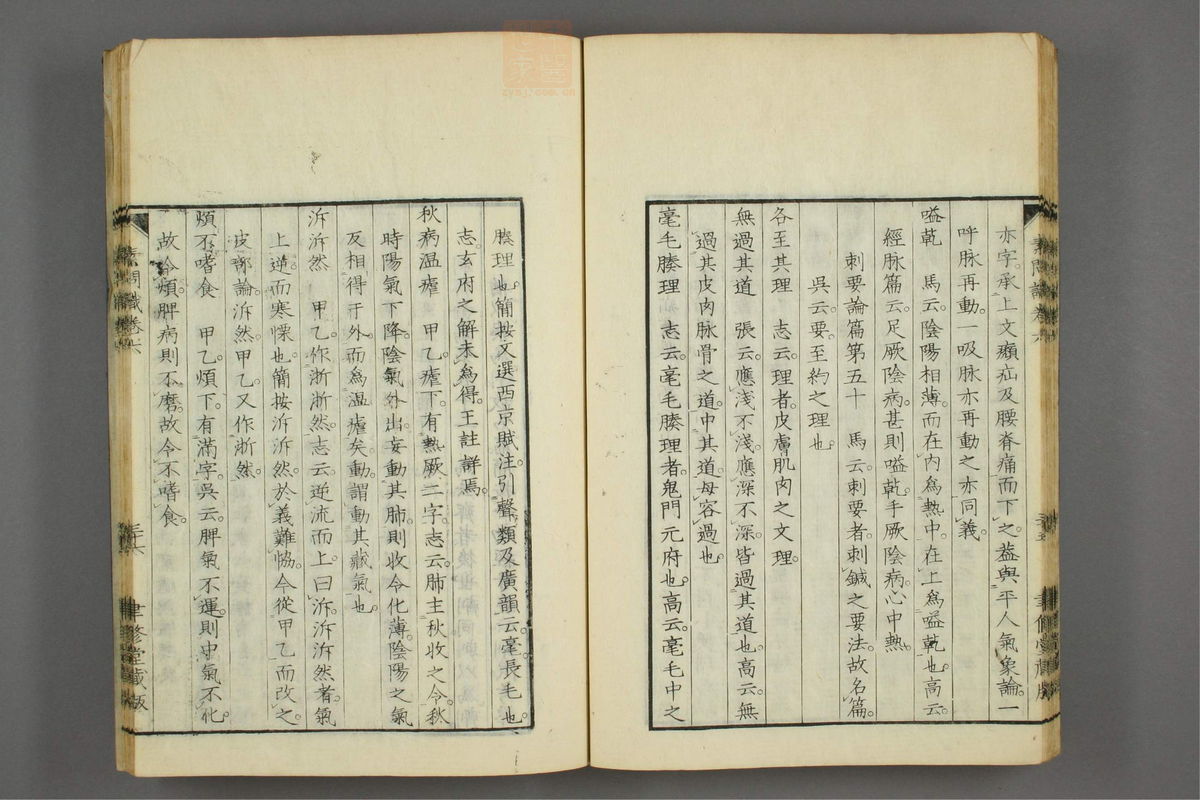 亦字。承上文㿗疝及腰脊痛而下之。蓋與平人氣象論。一
呼脉再動。一吸脉亦再動之亦同義。
嗌乾　馬云。陰陽相薄。而在內爲熱中。在上爲嗌乾也。高云。
經脉篇云。足厥陰病。甚則嗌乾。手厥陰病。心中熱。
刺要論篇第五十　馬云。刺要者。刺鍼之要法。故名篇。
吳云。要。至約之理也。
各至其理　志云。理者。皮膚肌肉之文理。
無過其道　張云。應淺不淺。應深不深。皆過其道也。高云。無
過其皮肉脉骨之道。中其道。毋容過也。
毫毛腠理　志云。毫毛腠理者。鬼門元府也。高云。毫毛中之
腠理也。簡按文選西京賦注。引聲類及廣韻云。毫。長毛也。
志。玄府之解未爲得。王註詳焉。
秋病温瘧　甲乙。瘧下。有熱厥二字。志云。肺主秋收之令。秋
時陽氣下降。陰氣外出。妄動其肺。則收令化薄。陰陽之氣
反相得于外。而爲温瘧矣。動。謂動其藏氣也。
泝泝然　甲乙。作淅淅然。志云。逆流而上曰泝。泝泝然者。氣
上逆而寒慄也。簡按泝泝然。於義難恊。今從甲乙而改之。
皮部論泝然。甲乙又作淅然。
煩不嗜食　甲乙。煩下。有滿字。吳云。脾氣不運。則中氣不化。
故令煩。脾病則不磨。故令不嗜食。
素問識卷六
三十六
聿修堂藏版